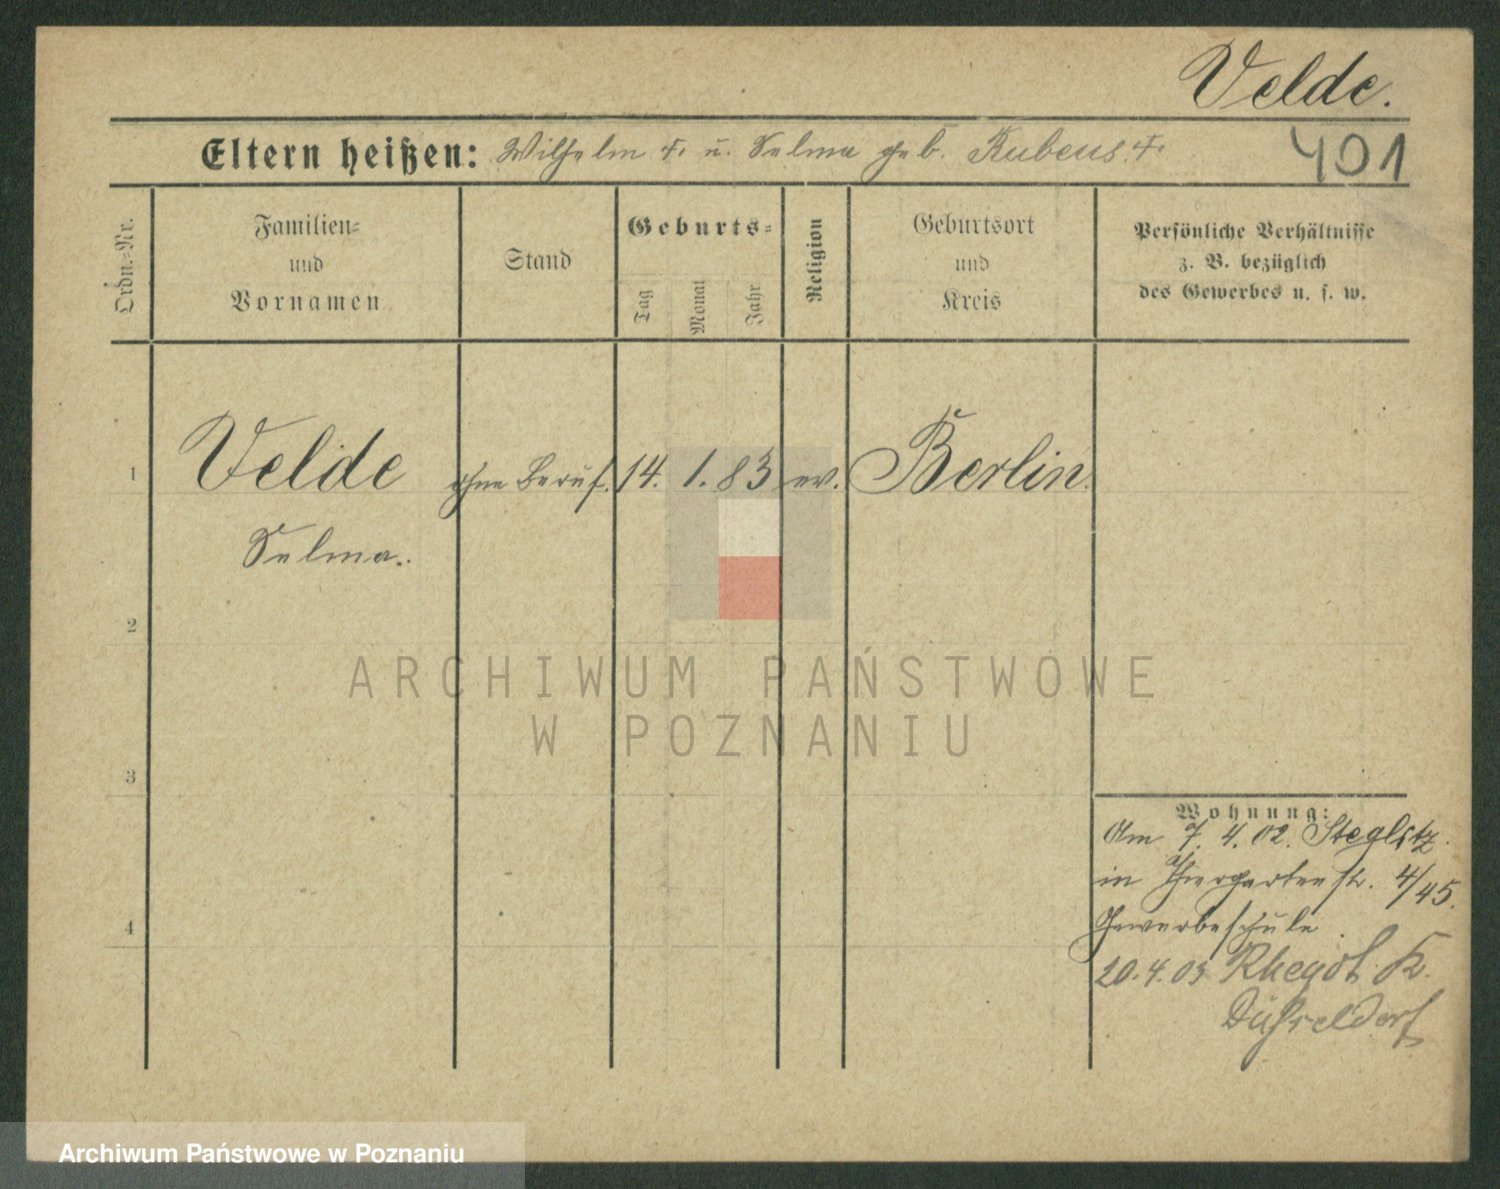 Velde.
Eltern heißen: Wilhelm †. u. Selma geb. Rubens. †.
401
Ordn.-Nr.
Familien-
und
Vornamen
Stand
Geburts-
Tag
Monat
Jahr
Religion
Geburtsort
und
Kreis
Persönliche Verhältnisse
z. B. bezüglich
des Gewerbes u. s. w.
1 Velde ohne Beruf. 14. 1. 83 ev. Berlin.
Selma.
2
ARCHIWUM PAŃSTWOWE
W POZNANIU
3
Wohnung:
Am 7. 4. 02. Steglitz
in Thiergartenstr. 4/45.
Gewerbeschule.
4
20. 4. 03 K.
Düsseldorf
Archiwum Państwowe w Poznaniu